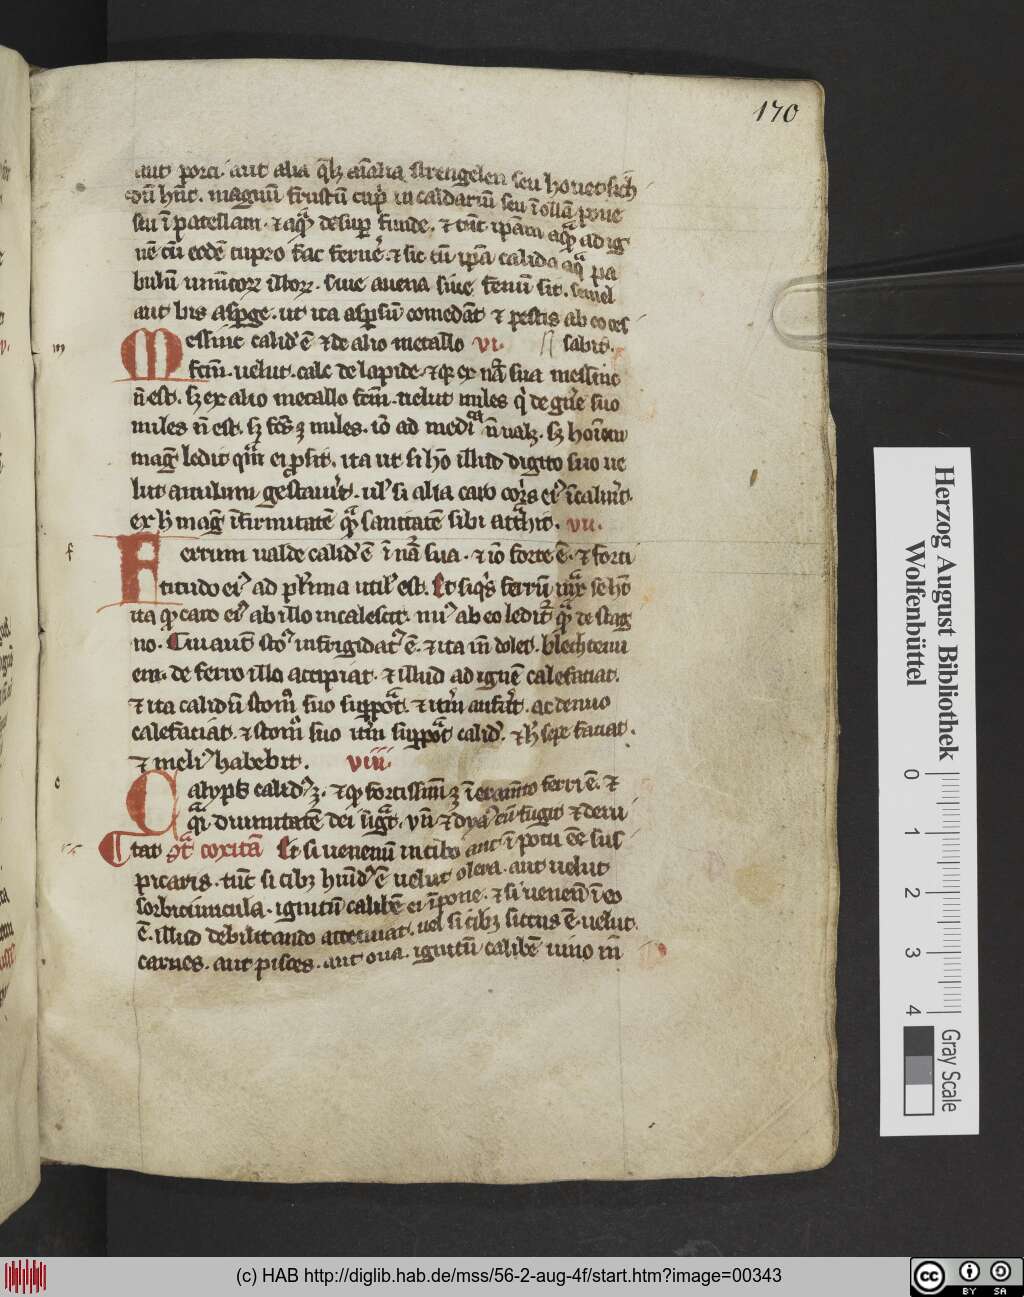 170
aut porci. aut alia q̄lꝫ aīalia strengelen seu houetsich
dūt hūt. magnū frustū cup̄ in caldariū seu ī ollā pone
seu ī patellam. ⁊ aquā desup̄ funde. ⁊ tūc ip̄am aquā ad ig
nē cū eodē cupro fac feruē. ⁊ sic cū ip̄a calida aqua pa
bulū iumētoꝝ illoꝝ. siue auena siue fenū sit. semel
aut bis asꝑge. ut ita asp̄sū comedāt ⁊ pestis ab eo ces
Messinc calid' ē ⁊ de alio metallo vi. sabit.
m
fc̄m. uelut. calc de lapide. ⁊ qꝛ ex nā sua messinc
n̄ est. sꝫ ex alio metallo fc̄m. uelut miles q̇ de gn̄e suo
miles n̄ est. sꝫ fc̄s ꝫ miles. iō ad medicā n̄ ualꝫ. sꝫ hoīem
mag̃ ledit qm̄ ei ꝓsit. ita ut si hō illud digito suo ue
lut anulum gestauit. ul' si alia caro corꝑis ei' īcaluit
ex h̄ mag̃ īfirmitatē qua sanitatē sibi att̃hit. vii.
f
Ferrum ualde calid' ē ī nā sua. ⁊ iō forte ē. ⁊ forti
titudo ei' ad pl'ima util' est. Et siq̇s ferrū iux̃ se hō
ita qꝫ caro ei' ab illo incalescit. min' ab eo ledit̃ qua de stag
no. Cui aut̄ sto' infrigidat' ē. ⁊ ita in̄ dolet. blechteuu
em. de ferro illo accipiat. ⁊ illud ad ignē calefaciat.
⁊ ita calidū stom̄ suo suppōt. ⁊ itm̄ aufāt. ac denuo
calefaciat. ⁊ stom̄ suo itm̄ suppōt calid'. ⁊ h̄ sepe faciat.
⁊ meli' habebit. viii.
c
Calyps calid' ꝫ. ⁊ qꝫ fortissimū ꝫ ī eramto ferri ē. ⁊
qua diuinitatē dei significat. vn̄ ⁊ dya' eū fugit ⁊ deui
tat 9t̃ toxitā Et si uenenū in cibo aut ī potu eē sus
picaris. tūc si cibꝫ humid' ē uelut olera. aut uelut
sorbiciuncula. ignitū calibē ei īpone. ⁊ si uenenū ī eo
ē. illud debilitando attenuat. uel si cibꝫ siccus ē. uelut
carnes. aut pisces. aut oua. ignitū calibē uino im̄
Herzog August Bibliothek
Wolfenbüttel
0 1 2 3 4
Gray Scale
(c) HAB http://diglib.hab.de/mss/56-2-aug-4f/start.htm?image=00343
cc BY SA